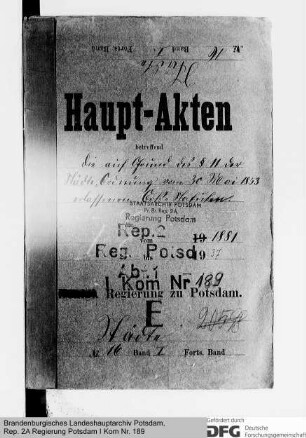 Forts. Band Band
Haupt-Akten
betreffend
die auf Grund des § 11 der
Städte Ordnung vom 30 Mai 1853
erlassenen
STAATSARCHIV POTSDAM
Pr. Br. Rep. 2A
Regierung Potsdam
Rep. 2
vom 19 1881
Reg. Potsd
bis 1937
I Kom Nr. 189
Regierung zu Potsdam.
E
Städte
№ 16 Band I Forts. Band
Brandenburgisches Landeshauptarchiv Potsdam,
Rep. 2A Regierung Potsdam I Kom Nr. 189
Gefördert durch
DFG Deutsche
Forschungsgemeinschaft